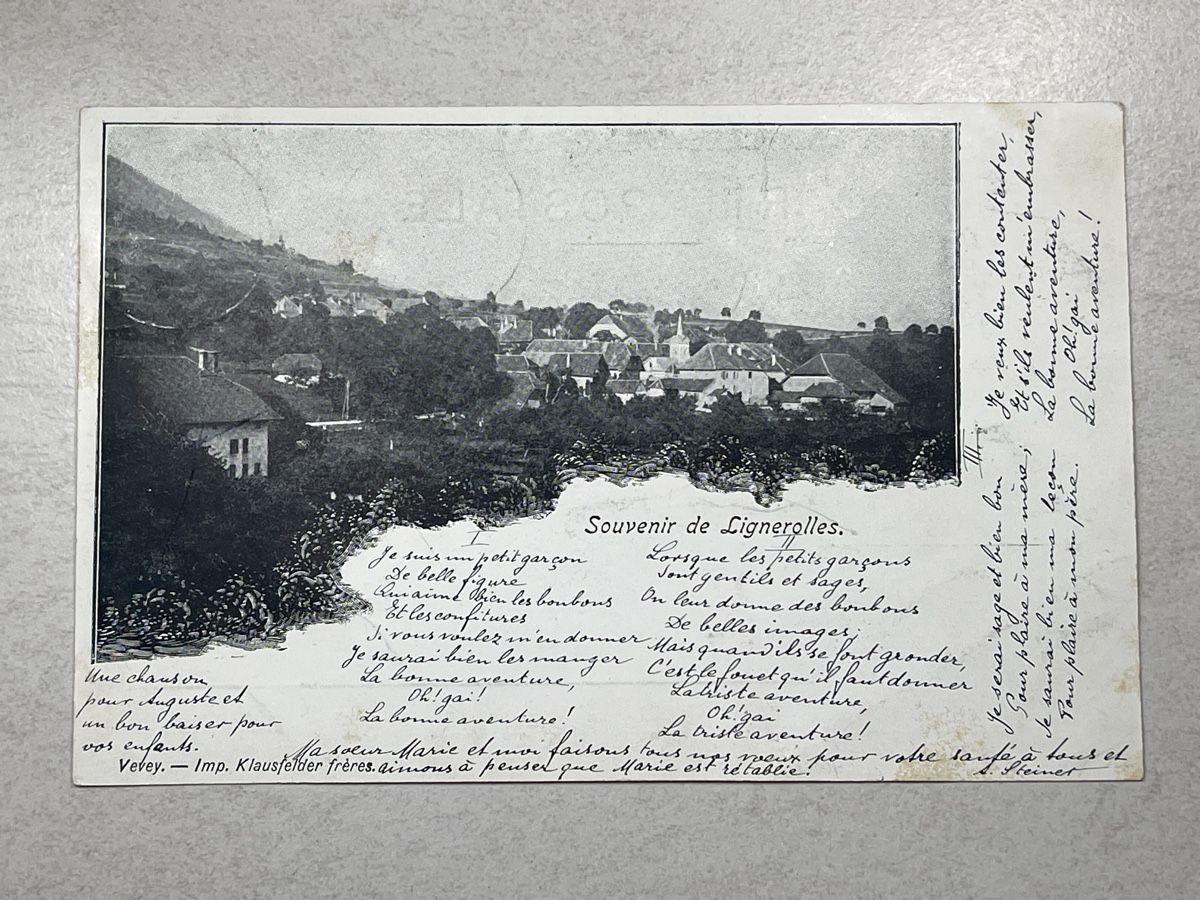 Souvenir de Lignerolles.
I
Je suis un petit garçon
De belle figure
Qui aime bien les bonbons
Et les confitures
Si vous voulez m'en donner
Je saurai bien les manger
La bonne aventure,
Oh! gai!
La bonne aventure!
II
Lorsque les petits garçons
Sont gentils et sages,
On leur donne des bonbons
De belles images;
Mais quand ils se font gronder,
C'est le fouet qu'il faut donner
La triste aventure,
Oh! gai
La triste aventure!
III.
Je serai sage et bien bon
Pour plaire à ma mère;
Je saurai bien ma leçon
Pour plaire à mon père.
Je veux bien les contenter,
Et s'ils veulent m'embrasser,
La bonne aventure,
Oh! gai
La bonne aventure!
Une chanson
pour Auguste et
un bon baiser pour
vos enfants.
Ma soeur Marie et moi faisons tous nos voeux pour votre santé à tous et
aimons à penser que Marie est rétablie.
A. Steiner
Vevey. — Imp. Klausfelder frères.